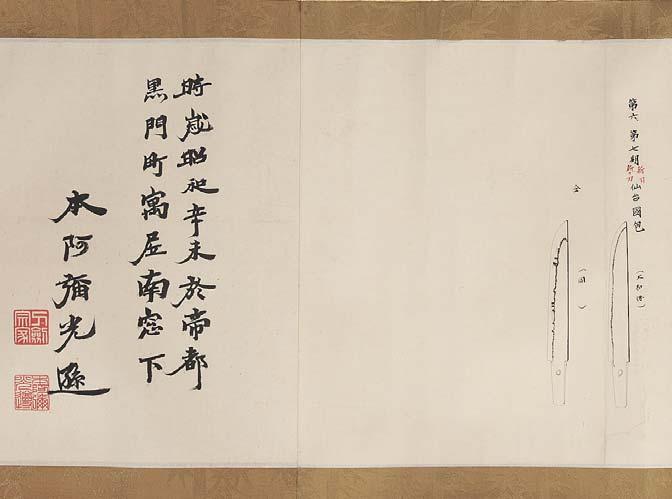 第六 第七期 新刀 仙台國包
新々刀
(大和傳)
仝
(同)
時歲昭和辛未於帝都
黒門町寓居南窓下
本阿彌光遜